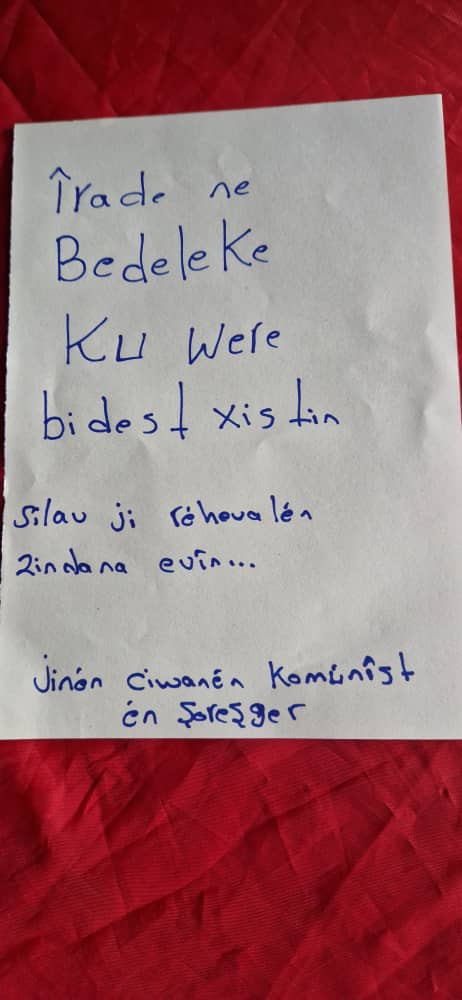 Îrade ne
Bedeleke
Ku were
bidest xistin
Silav ji réhevalén
Zindana evîn...
Jinén Ciwanén Komúnîst
én Şoreşger